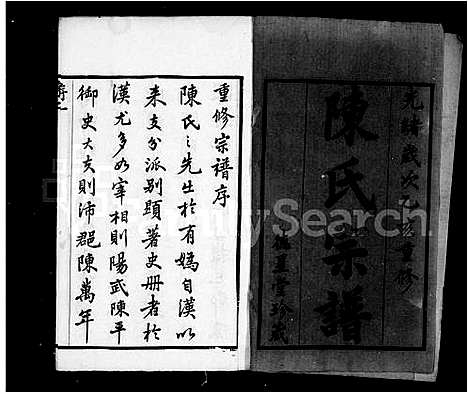 光緒歲次乙亥重修
陳氏宗譜
星堂珍藏
重修宗譜序
陳氏之先生於有媯自漢以
来支分派别顯著史册者於
漢尤多如宰相則陽武陳平
御史大夫則沛郡陳萬年
序一
FamilySearch